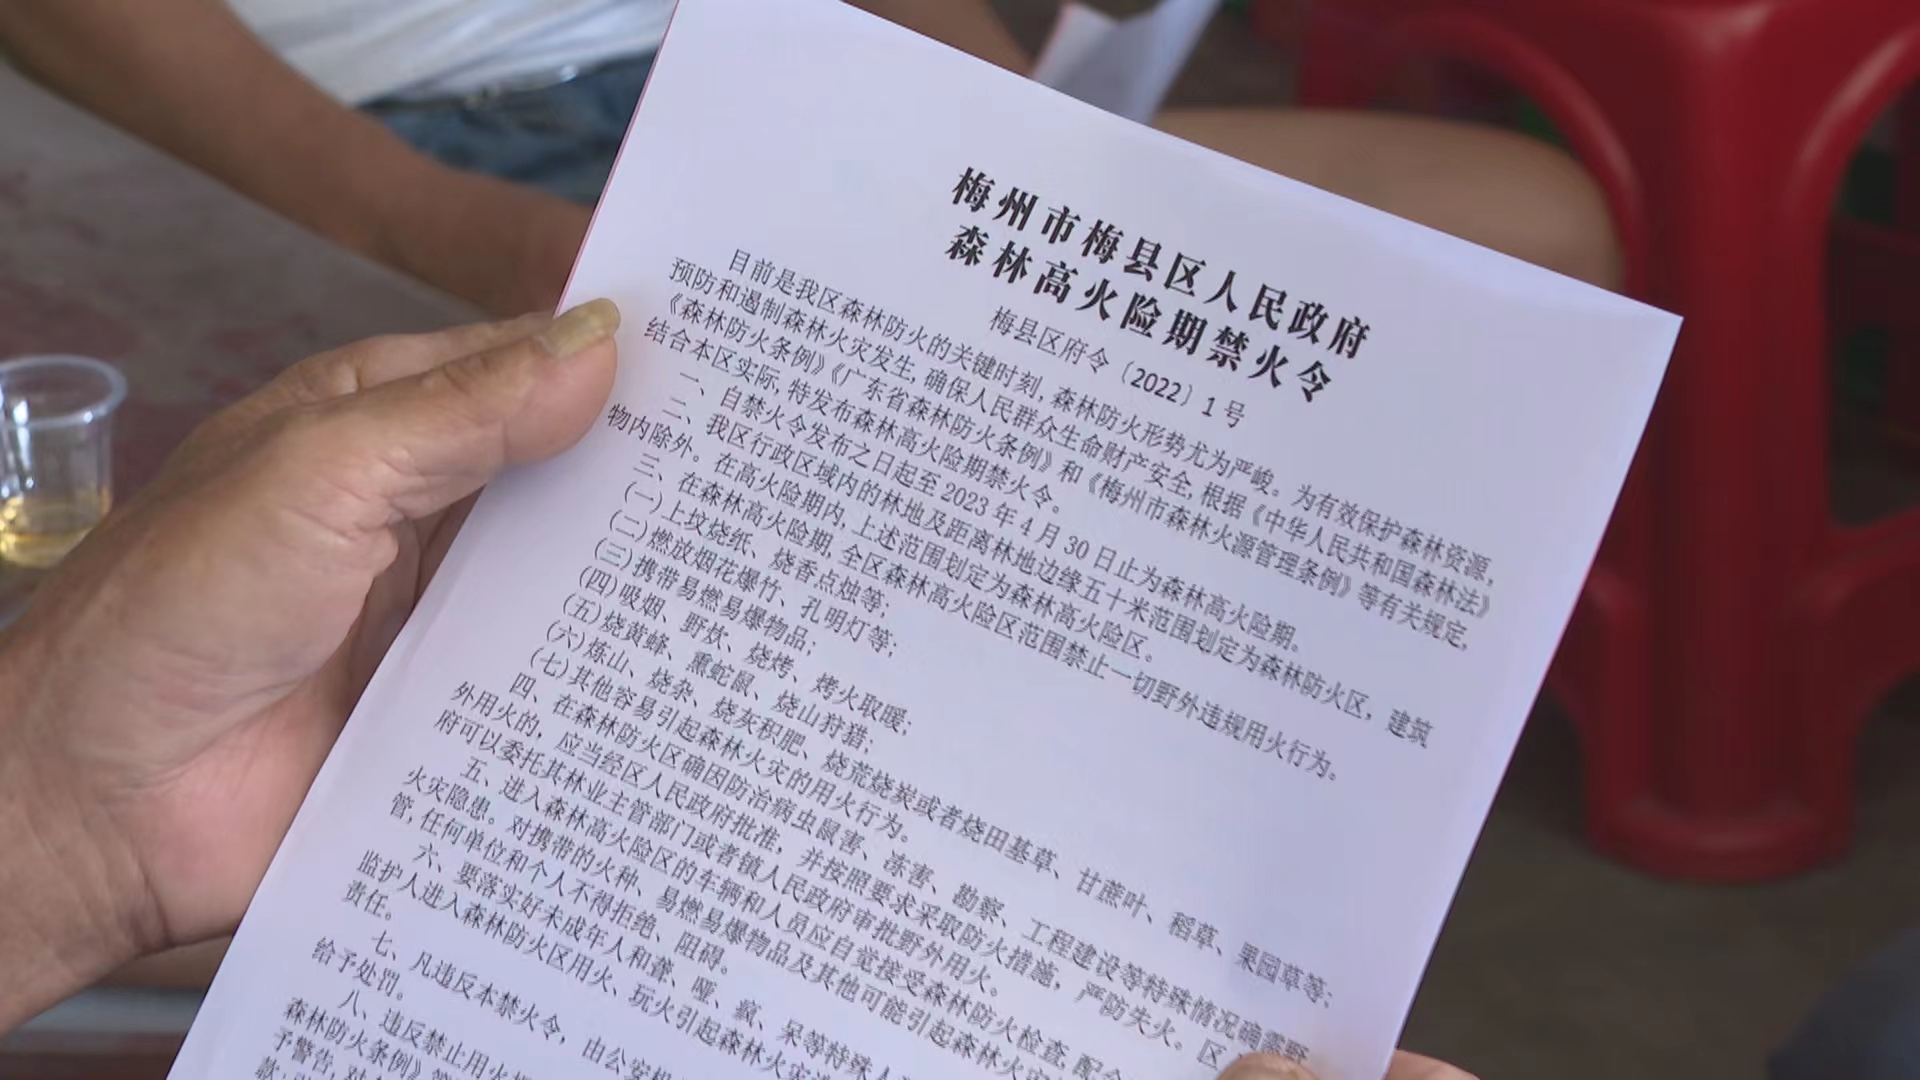 梅州市梅县区人民政府
森林高火险期禁火令
梅县区府令〔2022〕1号
目前是我区森林防火的关键时刻，森林防火形势尤为严峻。为有效保护森林资源，
预防和遏制森林火灾发生，确保人民群众生命财产安全，根据《中华人民共和国森林法》
《森林防火条例》《广东省森林防火条例》和《梅州市森林火源管理条例》等有关规定，
结合本区实际，特发布森林高火险期禁火令。
一、自禁火令发布之日起至2023年4月30日止为森林高火险期。
二、我区行政区域内的林地及距离林地边缘五十米范围划定为森林防火区，建筑
物内除外。在高火险期内，上述范围划定为森林高火险区。
三、在森林高火险期，全区森林高火险区范围禁止一切野外违规用火行为。
(一)上坟烧纸、烧香点烛等；
(二)燃放烟花爆竹、孔明灯等；
(三)携带易燃易爆物品；
(四)吸烟、野炊、烧烤、烤火取暖；
(五)烧黄蜂、熏蛇鼠、烧山狩猎；
(六)炼山、烧杂、烧灰积肥、烧荒烧炭或者烧田基草、甘蔗叶、稻草、果园草等；
(七)其他容易引起森林火灾的用火行为。
四、在森林防火区确因防治病虫鼠害、冻害、勘察、工程建设等特殊情况确需野
外用火的，应当经区人民政府批准，并按照要求采取防火措施，严防失火。区
府可以委托其林业主管部门或者镇人民政府审批野外用火。
五、进入森林高火险区的车辆和人员应自觉接受森林防火检查，配合
火灾隐患。对携带的火种、易燃易爆物品及其他可能引起森林火灾
管，任何单位和个人不得拒绝、阻碍。
六、要落实好未成年人和聋、哑、疯、呆等特殊人
监护人进入森林防火区用火、玩火引起森林火灾
责任。
七、凡违反本禁火令，由公安机
给予处罚。
八、违反禁止用火
森林防火条例》
予警告，对
款，